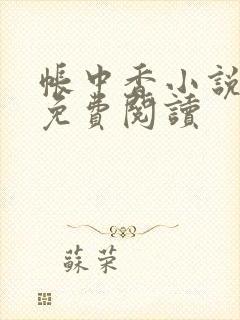 帳中香小說
免費閱讀
蘇荣